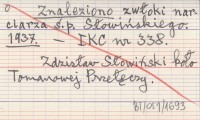 o Znaleziono zwłoki nar-
ciarza ś.p. Słowińskiego.
1937. — IKC nr 338.
Zdzisław Słowiński koło
Tomanowej Przełęczy.
BT/OS1/1693